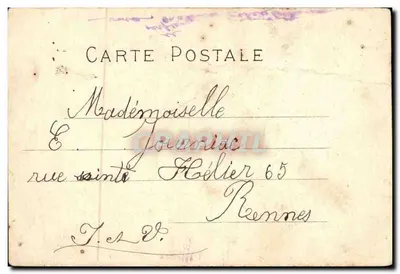 CARTE POSTALE
Mademoiselle
E.
rue sainte Hélier 65
Rennes
I. et V.